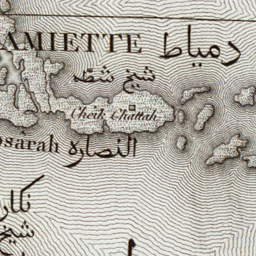 AMIETTE دمياط
شيخ شطه
Cheik Chattah
osarah النصاره